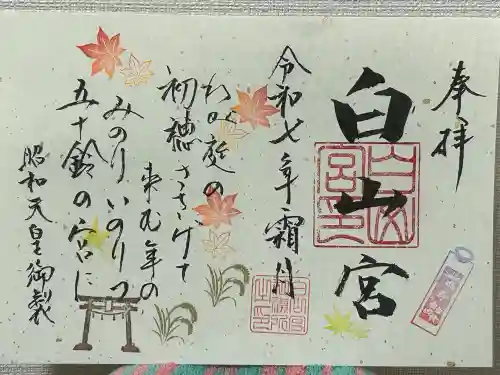 奉拝
白山宮
令和七年霜月
わが庭の
初穂ささげて
来む年の
みのりいのりつ
五十鈴の宮に
昭和天皇御製